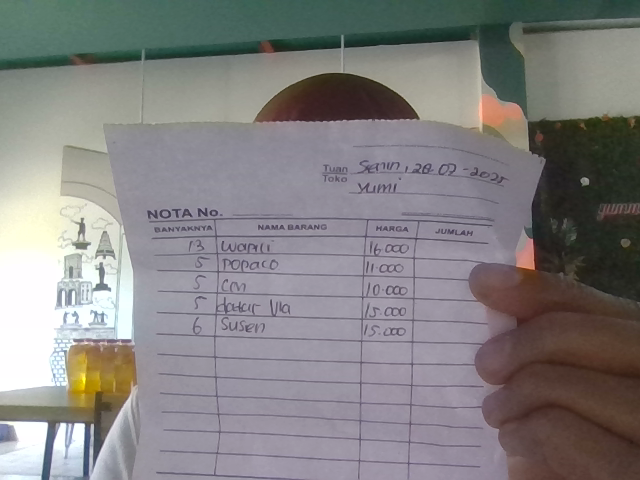 Tuan Senin, 28-07-2025
Toko Yumi
NOTA No.
BANYAKNYA NAMA BARANG HARGA JUMLAH
13 wapili 16.000
5 popaco 11.000
5 cm 10.000
5 datar Via 15.000
6 Susen 15.000